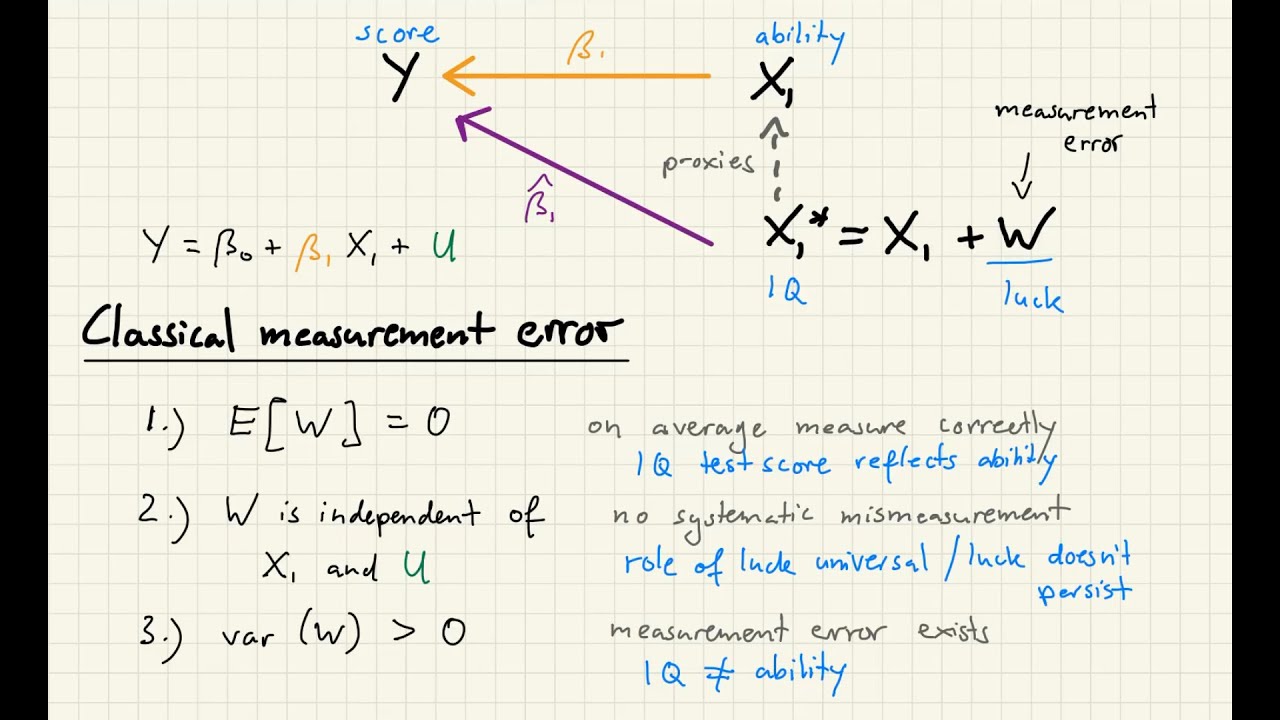 score
β₁
ability
Y
X₁
measurement
error
proxies
β̂₁
X₁* = X₁ + W
Y = β₀ + β₁ X₁ + U
IQ
luck
Classical measurement error
1.) E[W] = 0
on average measure correctly
IQ test score reflects ability
2.) W is independent of
X₁ and U
no systematic mismeasurement
role of luck universal / luck doesn't
persist
3.) var (W) > 0
measurement error exists
IQ ≠ ability